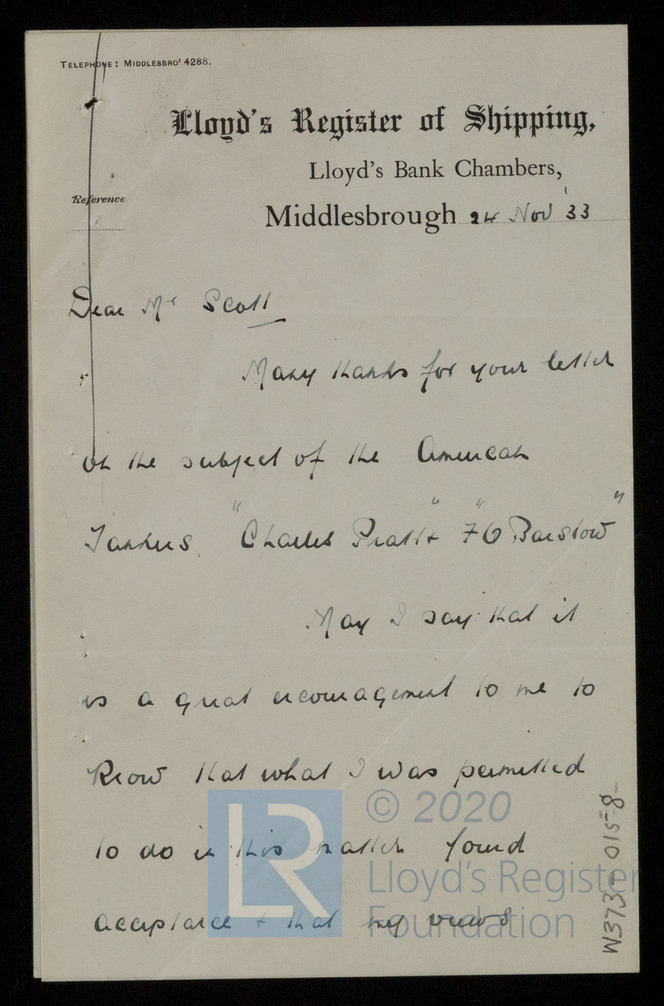 TELEPHONE: MIDDLESBRO' 4288.
Lloyd's Register of Shipping,
Lloyd's Bank Chambers,
Reference
Middlesbrough 24 Nov '33
Dear Mr Scott
Many thanks for your letter
on the subject of the American
Tankers. "Charles Pratt" + "F G Barstow"
May I say that it
is a great encouragement to me to
know that what I was permitted
to do in this matter found
acceptance + that my views
© 2020
Lloyd's Register
Foundation
LR
W373-0158-